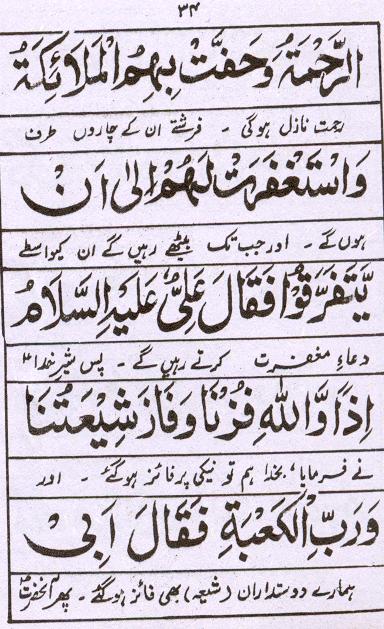 ۳۴
الرَّحْمَةُ وَحَفَّتْ بِهِمُ الْمَلَائِكَةُ
رحمت نازل ہوگی - فرشتے ان کے چاروں طرف
وَاسْتَغْفَرَتْ لَهُمْ اِلٰى اَنْ
ہوں گے - اور جب تک بیٹھے رہیں گے ان کیواسطے
يَّتَفَرَّقُوْا فَقَالَ عَلِيٌّ عَلَيْهِ السَّلَامُ
دعاءِ مغفرت کرتے رہیں گے - پس شیرِ خدا
اِذًا وَّاللّٰهِ فُزْنَا وَفَازَ شِيْعَتُنَا
نے فرمایا، بخدا ہم تو نیکی پر فائز ہوگئے - اور
وَرَبِّ الْكَعْبَةِ فَقَالَ اَبِىْ
ہمارے دوستداران (شیعہ) بھی فائز ہوگئے - پھر آنحضرتؐ